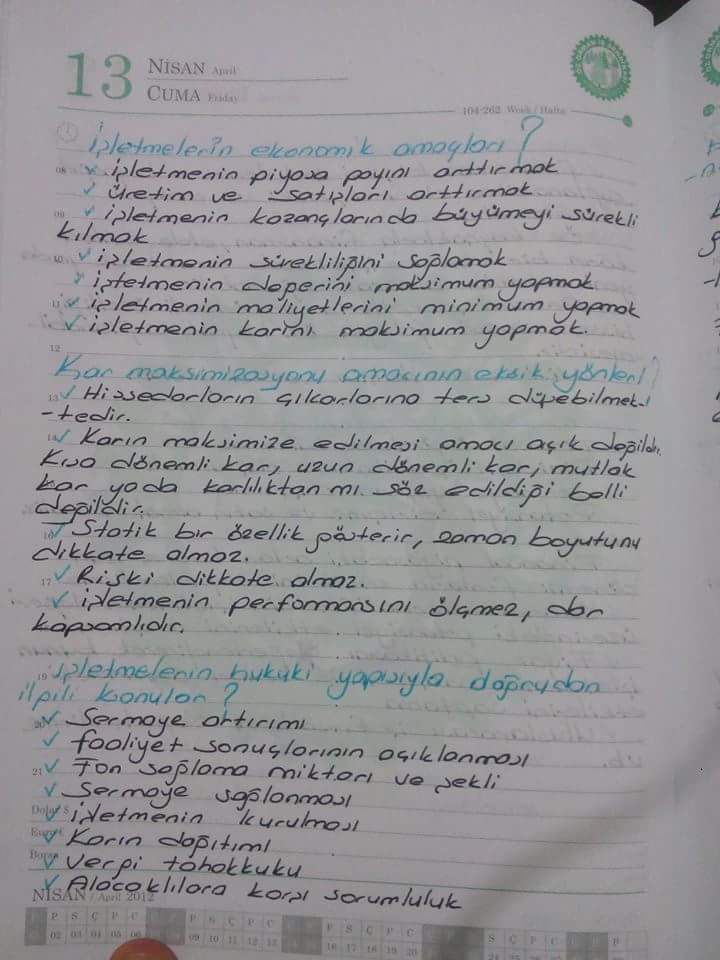 13 NİSAN April
CUMA Friday
104-262 Week / Hafta
İşletmelerin ekonomik amaçları?
08 ✓ işletmenin piyasa payını arttırmak
✓ üretim ve satışları arttırmak
09 ✓ işletmenin kazançlarında büyümeyi sürekli
kılmak
10 ✓ işletmenin sürekliliğini sağlamak
✓ işletmenin değerini maksimum yapmak
11 ✓ işletmenin maliyetlerini minimum yapmak
✓ işletmenin karını maksimum yapmak.
12
Kar maksimizasyonu amacının eksik yönleri?
13 ✓ Hissedarların çıkarlarına ters düşebilmek-
-tedir.
14 ✓ Karın maksimize edilmesi amacı açık değildir.
Kısa dönemli kar, uzun dönemli kar, mutlak
kar yada karlılıktan mı söz edildiği belli
değildir.
16 ✓ Statik bir özellik gösterir, zaman boyutunu
dikkate almaz.
17 ✓ Riski dikkate almaz.
✓ işletmenin performansını ölçmez, dar
kapsamlıdır.
19 işletmelerin hukuki yapısıyla doğrudan
ilgili konular?
20 ✓ Sermaye artırımı
✓ faaliyet sonuçlarının açıklanması
21 ✓ Fon sağlama miktarı ve şekli
✓ Sermaye sağlanması
Dolar $ ✓ işletmenin kurulması
Euro € ✓ Karın dağıtımı
Borsa ✓ vergi tahakkuku
✓ Alacaklılara karşı sorumluluk
NİSAN / April 2012
P S Ç P C P S Ç P C P S Ç P C P S Ç P C P
02 03 04 05 06 09 10 11 12 13 16 17 18 19 20